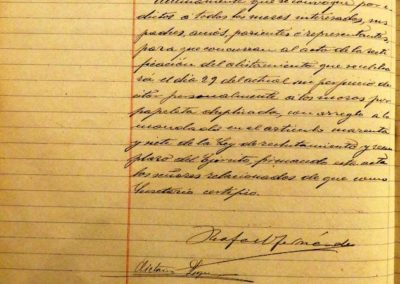 Ultimamente que se convoque por e-
dictos a todos los mozos interesados, sus
padres, amos, parientes ó representantes,
para que concurran al acto de la recti
ficación del alistamiento que se celebra
rá el dia 29 del actual sin perjuicio de
citar personalmente a los mozos por
papeleta duplicada, con arreglo a lo
mandado en el articulo cuarenta
y siete de la Ley de reclutamiento y reem
plazo del Ejercito, firmando esta acta
los señores relacionados de que como
Secretario certifico.
Rafael Fernández